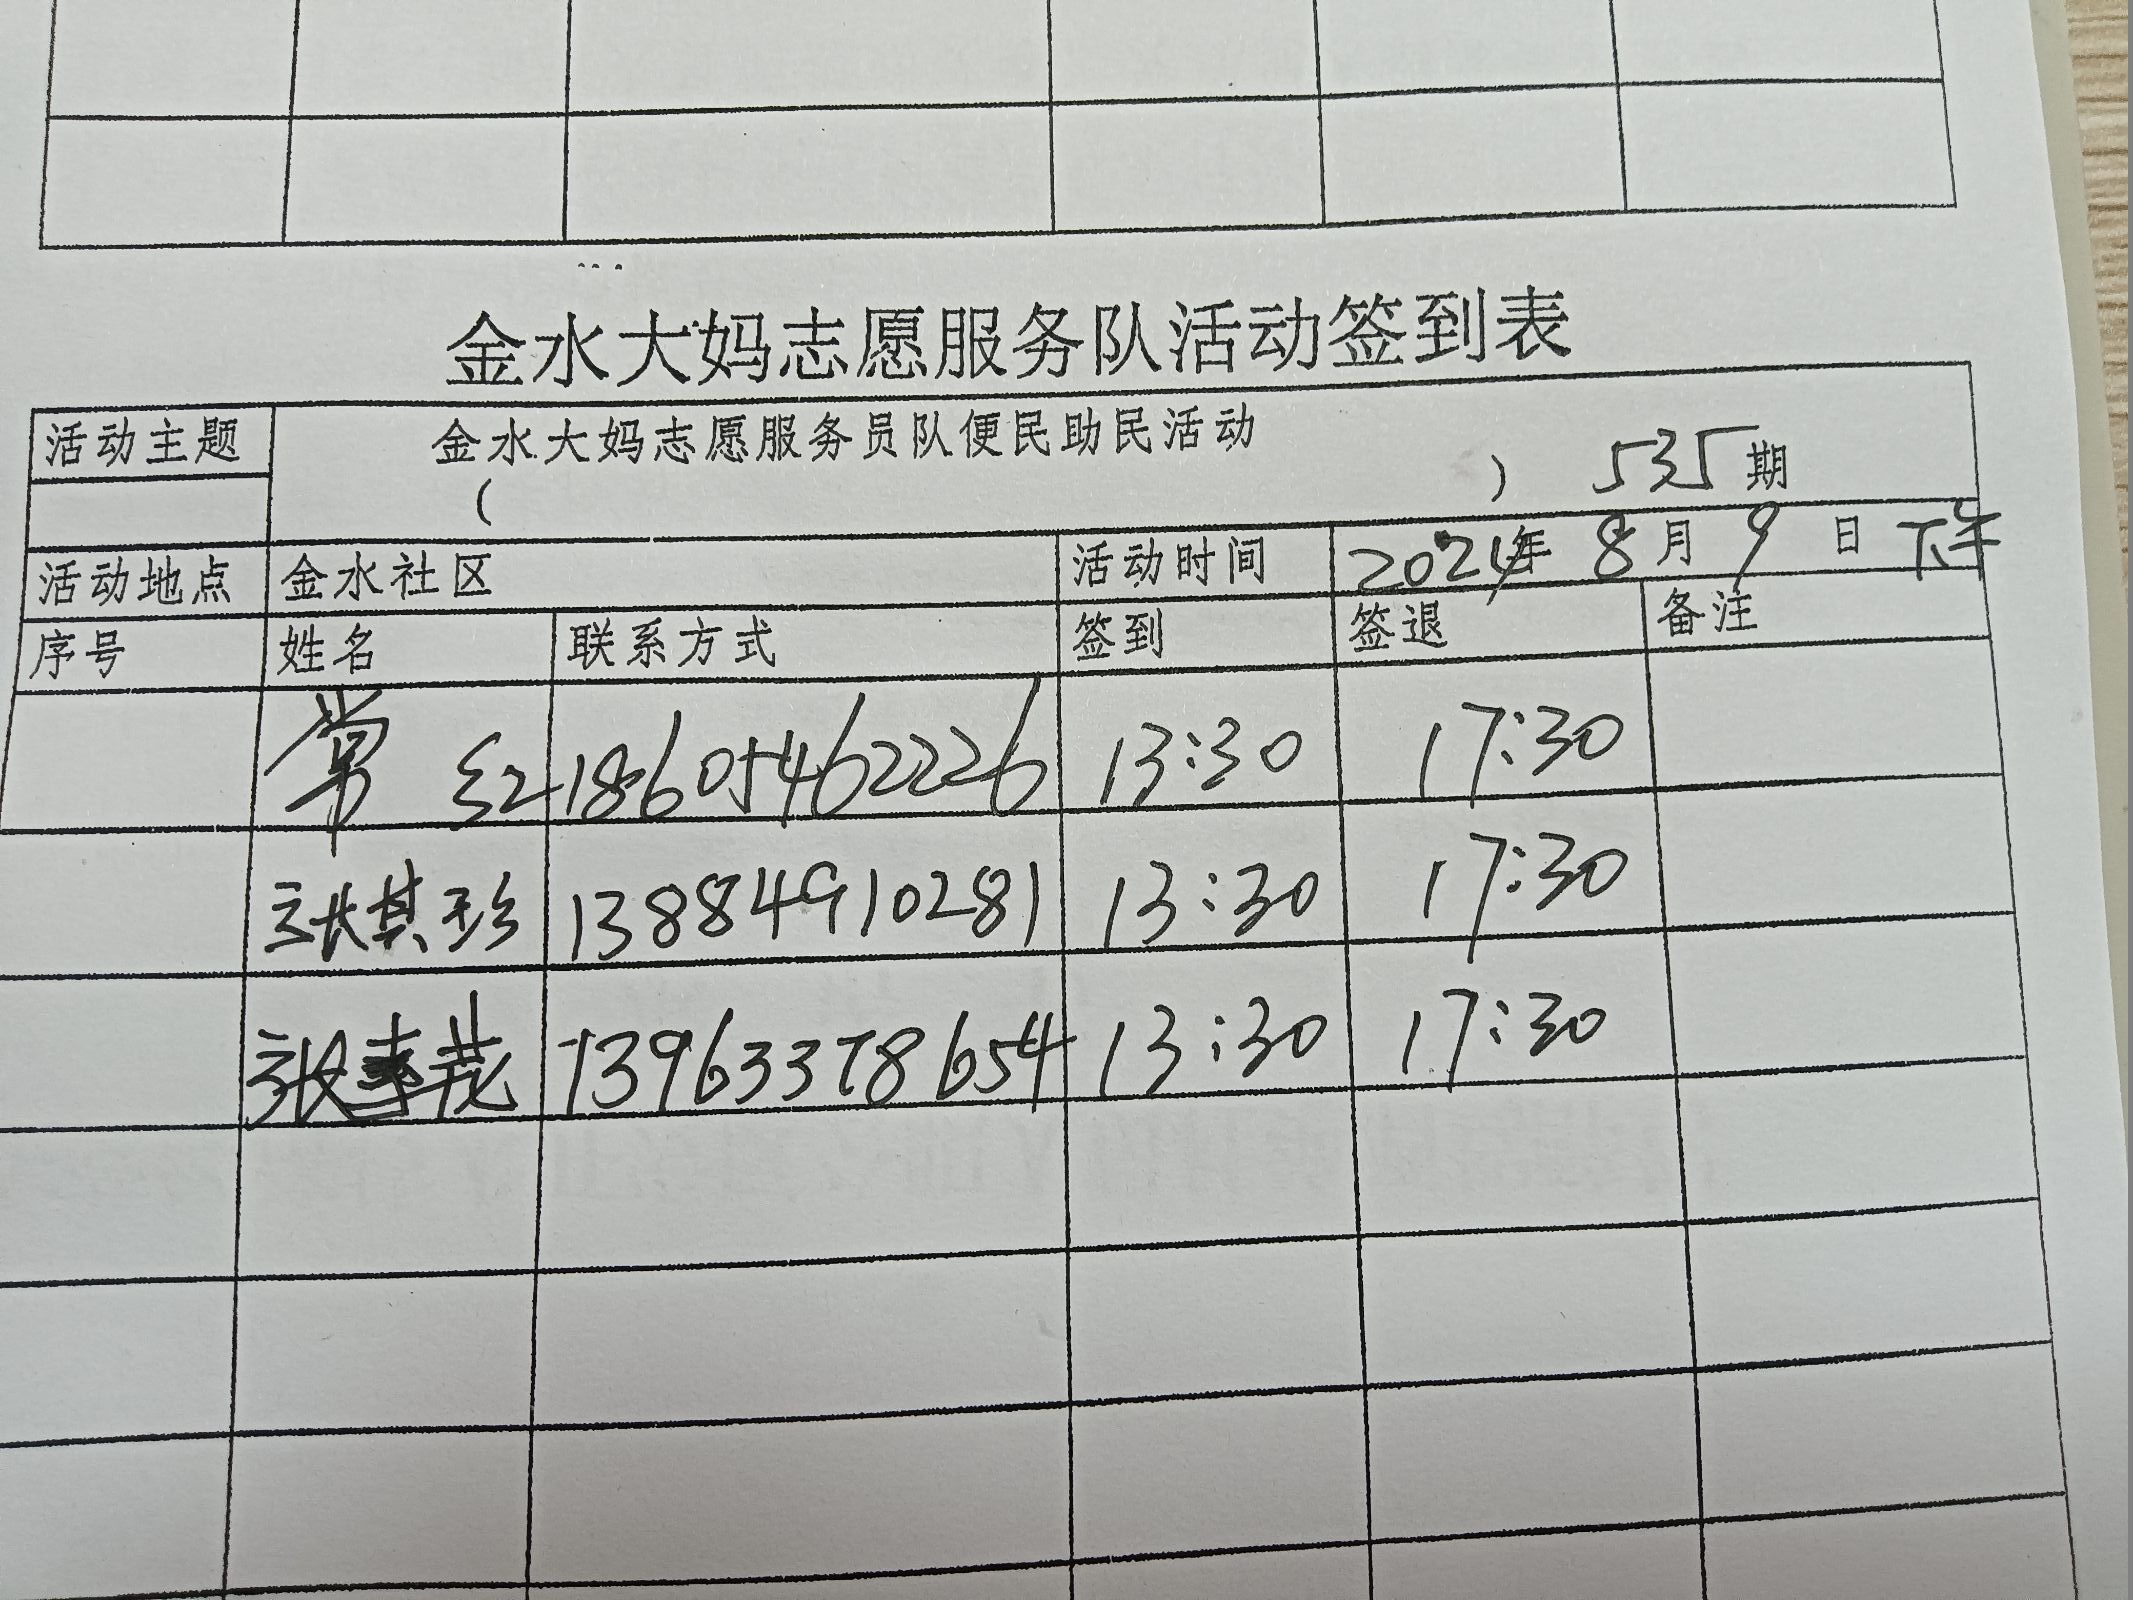 金水大妈志愿服务队活动签到表
活动主题 金水大妈志愿服务员队便民助民活动
( ) 535期
活动地点 金水社区 活动时间 2024年 8月 9日 下午
序号 姓名 联系方式 签到 签退 备注
常红 18605462226 13:30 17:30
张其珍 13884910281 13:30 17:30
张 13963378654 13:30 17:30